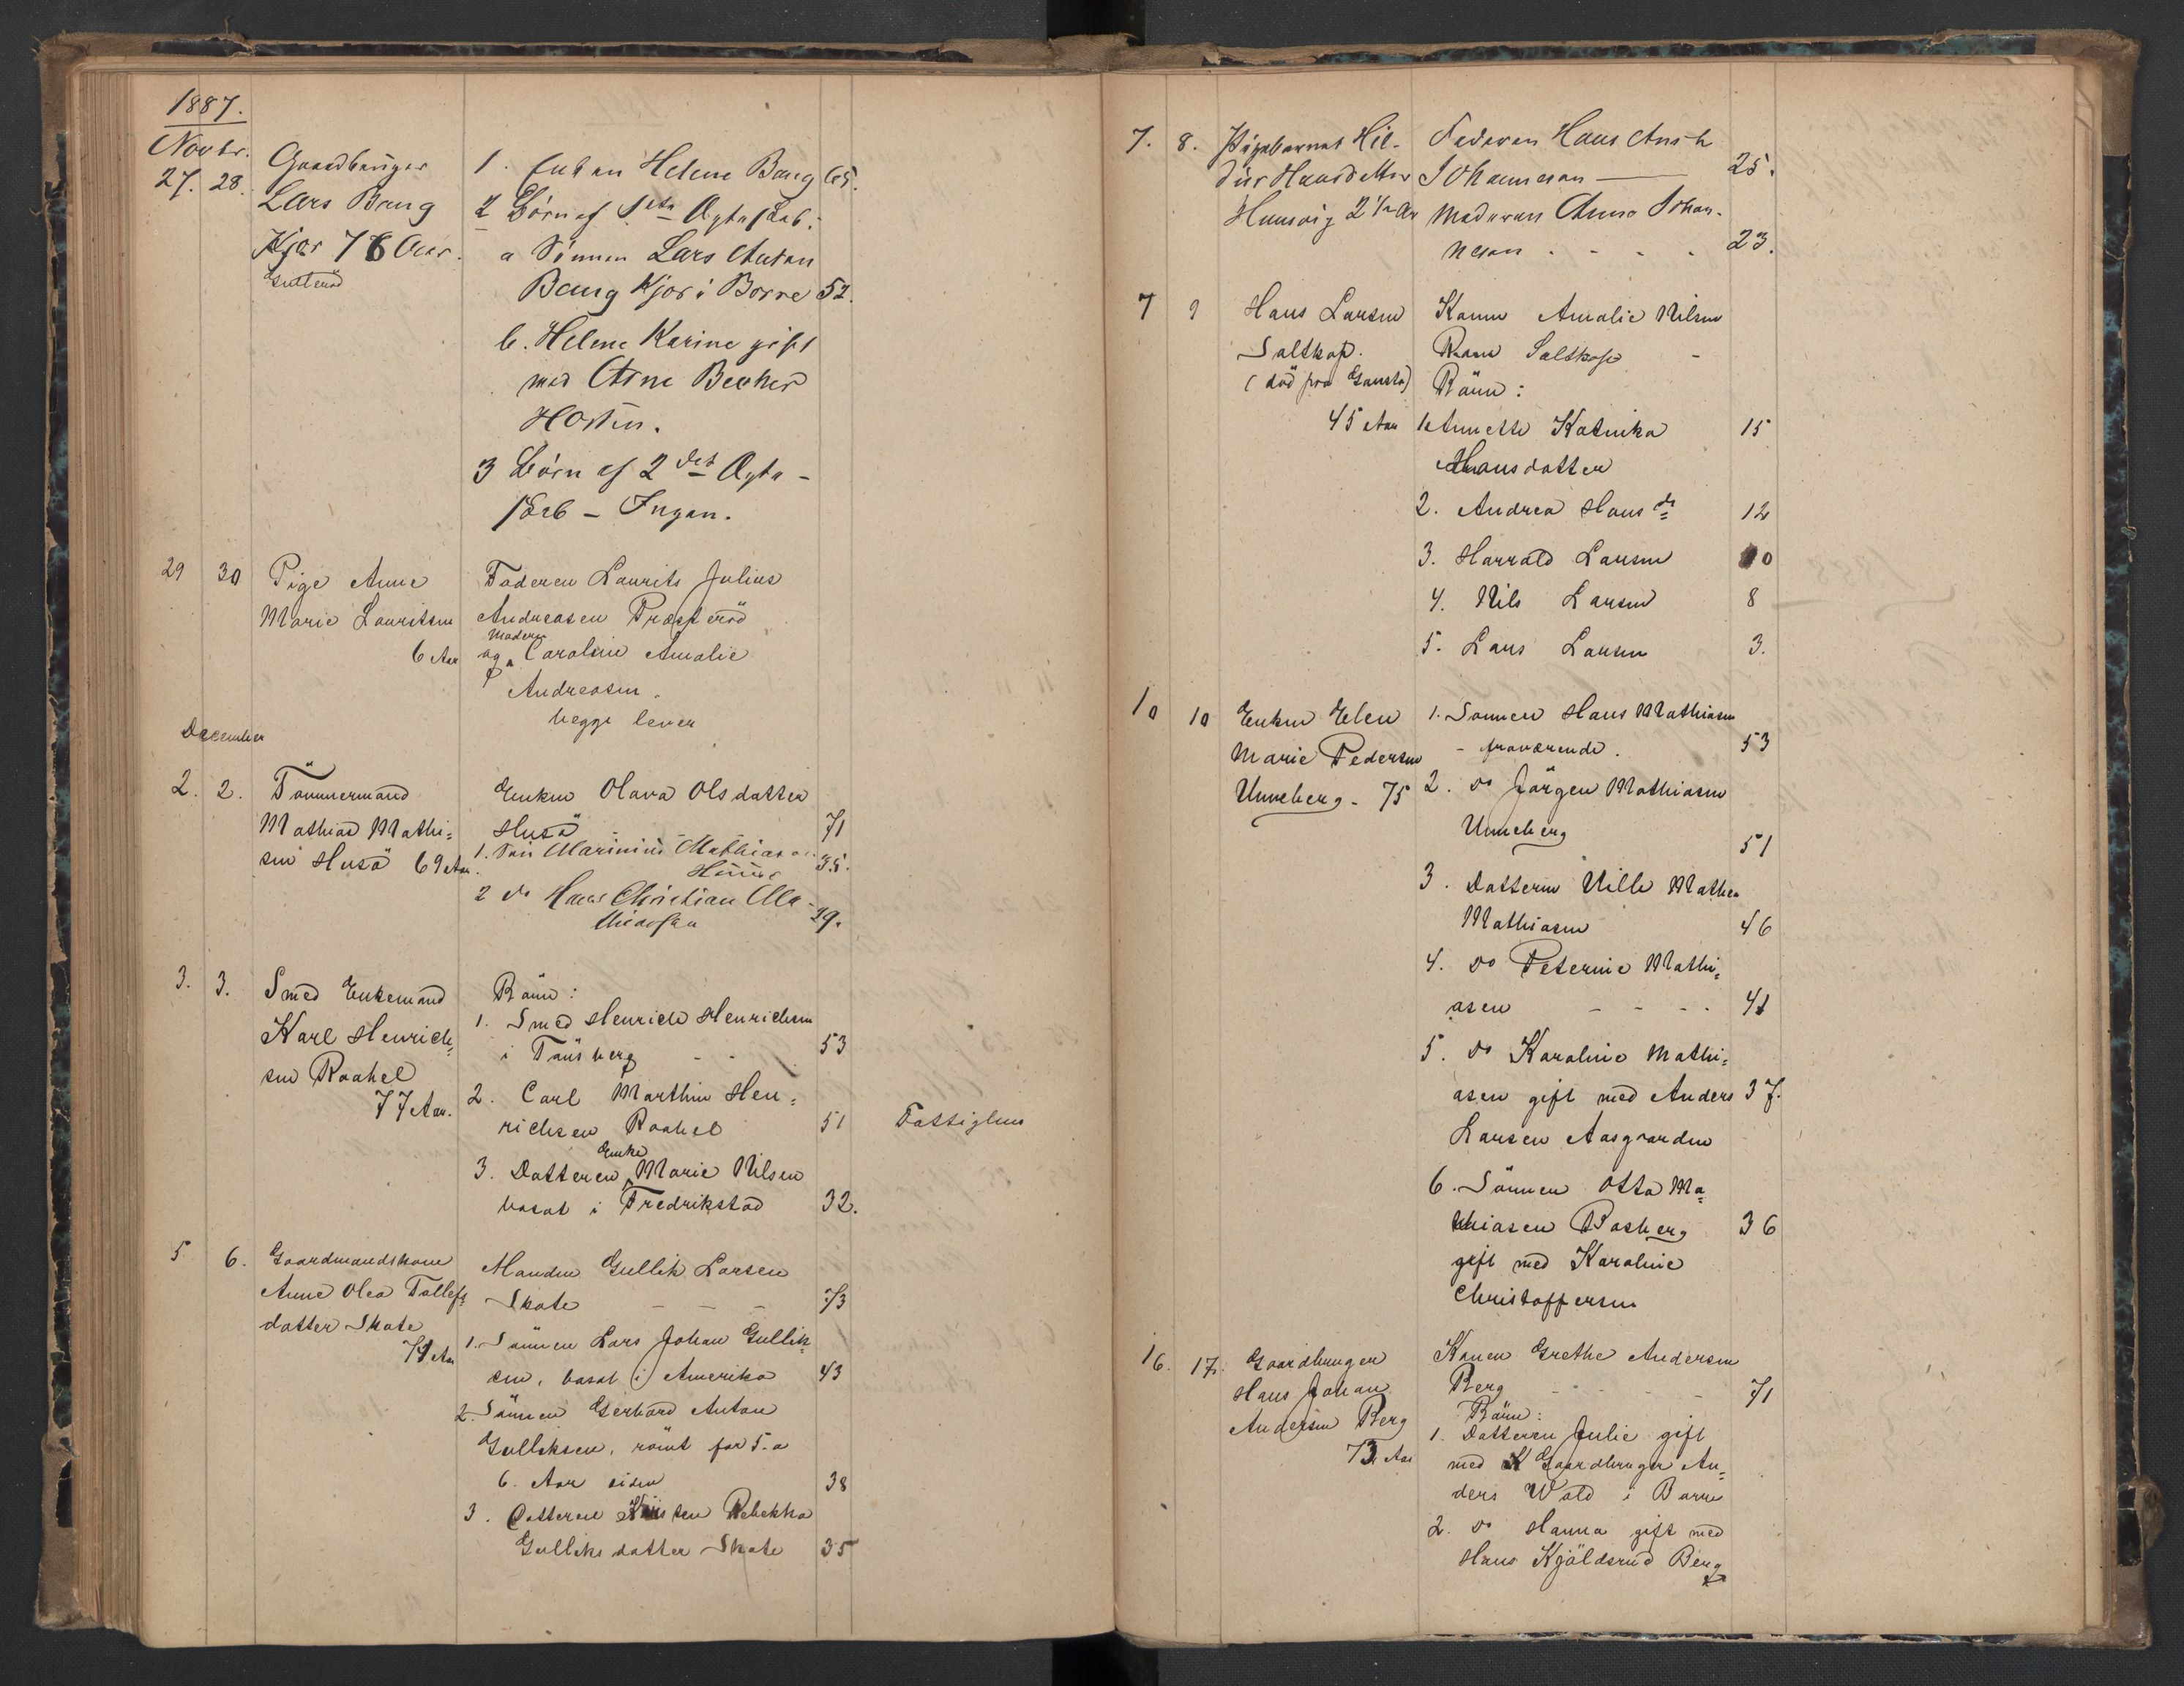 1887.
Novbr.
27. 28. Gaardbruger
Lars Bang
Kjær 76 Aar.
1. Enken Helene Bang 65.
2 Børn af 1ste Ægteskab:
a Sønnen Lars Anton
Bang Kjær i Borre 52.
b. Helene Karine gift
med Arne Becker
Horten.
3 Børn af 2det Ægte-
skab – Ingen.
29 30 Pige Anne
Marie Lauritsen
6 Aar
Faderen Laurits Julius
Andreasen Præsterød
og Moderen Caroline Amalie
Andreasen.
begge lever
December
2. 2. Tømmermand
Mathias Mathi=
sen Husø 69 Aar.
Enken Olava Olsdatter
Husø 71
1. Søn Marinius Mathiasen
Husø 35.
2 do Hans Christian Ma-
thiassen 29.
3. 3. Smed Enkemand
Karl Henrich=
sen Raahel
77 Aar.
Børn:
1. Smed Henrich Henrichsen
i Tønsberg - - 53
2. Carl Marthin Hen=
richsen Raahel 51 Fattiglem
3. Datteren Enke Marie Nilsen
bosat i Fredrikstad 32.
5 6. Gaardmandskone
Anne Olea Tollefs
datter Skate
71 Aar
Manden Gullik Larsen
Skate - - - 73
1. Sønnen Lars Johan Gullik=
sen, bosat i Amerika 43
2. Sønnen Gerhard Anton
Gulliksen, rømt for 5. a
6. Aar siden 38
3. Datteren Kristen Rebekka
Gulliksdatter Skate 35
7. 8. Pigebarnet Hil-
dur Hansdatter
Husvig 2 1/2 Aar
Faderen Hans Ansh
Johannesen 25.
Moderen Anna Johan-
nesen . - - . 23.
7 9 Hans Larsen
Saltkop.
(død fra Gausta)
45 Aar
Konen Amalie Nilsen
Ram Saltkop -
Børn:
1 Annette Katinka 15
Hansdatter
2. Andrea Hansdr 12
3. Harrald Larsen 10
4. Nils Larsen 8
5. Lars Larsen 3.
10 10 Enken Elen
Marie Pedersen
Unneberg - 75
1. Sønnen Hans Mathiasen
- fraværende. 53
2. do Jørgen Mathiasen
Unneberg 51
3. Datteren Nille Mathea
Mathiasen 46
4. do Peternie Mathi=
asen - - - - 41
5. do Karoline Mathi=
asen gift med Anders 37.
Larsen Aasgaarden
6. Sønnen Otto Ma=
thiasen Basberg 36
gift med Karoline
Christoffersen
16. 17. Gaardbruger
Hans Johan
Andersen Berg
73 Aar
Konen Grethe Andersen
Berg - - - 71
Børn:
1. Datteren Julie gift
med Gaardbruger An=
ders Wold i Borre
2. do Hanna gift med
Hans Kjøldsrud Berg